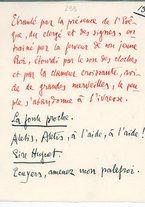 293
Ebranlé par la présence de l'Evê-
que, du clergé et des signes, en-
traîné par la ferveur de son jeune
Roi, étourdi par le son des cloches
et par la clameur croissante, avi-
de de grandes merveilles, le peu-
ple s'abandonne à l'ivresse.
La foule proche.
Aletis, Aletis, à l'aide, à l'aide !
Sire Huguet.
Ecuyers, amenez mon palefroi.